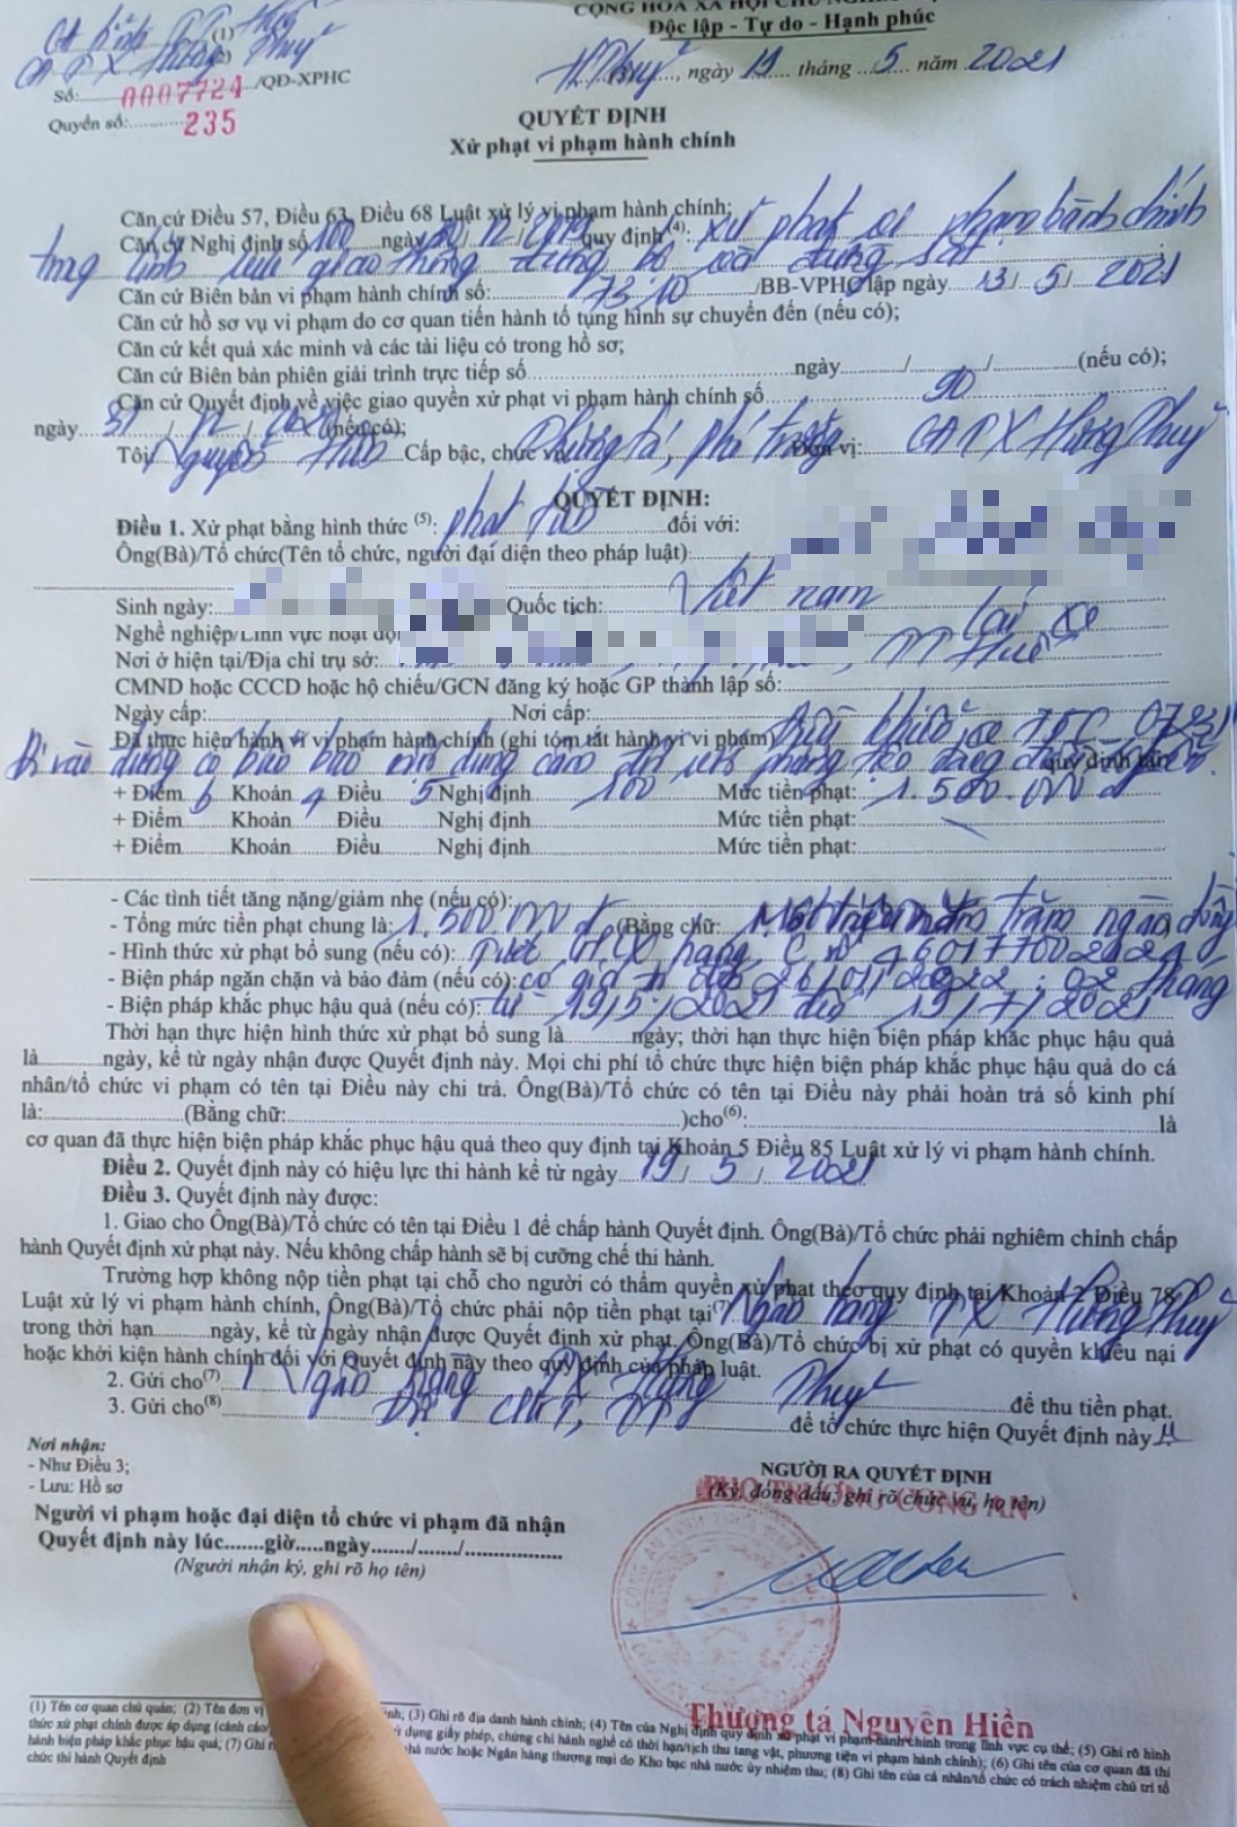 CA tỉnh TT Huế (1)
CA TX Hương Thuỷ (2)
CỘNG HÒA XÃ HỘI CHỦ NGHĨA
Độc lập - Tự do - Hạnh phúc
Số: 0007724 /QĐ-XPHC
H. Thuỷ, ngày 19 tháng 5 năm 2021
Quyển số: 235
QUYẾT ĐỊNH
Xử phạt vi phạm hành chính
Căn cứ Điều 57, Điều 63, Điều 68 Luật xử lý vi phạm hành chính;
Căn cứ Nghị định số 100 ngày 30/12/2019 quy định (4): xử phạt vi phạm hành chính
trong lĩnh vực giao thông đường bộ và đường sắt
Căn cứ Biên bản vi phạm hành chính số: 7310 /BB-VPHC lập ngày 13/5/2021
Căn cứ hồ sơ vụ vi phạm do cơ quan tiến hành tố tụng hình sự chuyển đến (nếu có);
Căn cứ kết quả xác minh và các tài liệu có trong hồ sơ;
Căn cứ Biên bản phiên giải trình trực tiếp số ngày / / (nếu có);
Căn cứ Quyết định về việc giao quyền xử phạt vi phạm hành chính số 90
ngày 31/12/2020 (nếu có);
Tôi Nguyễn Hiền Cấp bậc, chức vụ: Thượng tá, phó trưởng Đơn vị: CA TX Hương Thuỷ
QUYẾT ĐỊNH:
Điều 1. Xử phạt bằng hình thức (5): phạt tiền đối với:
Ông(Bà)/Tổ chức(Tên tổ chức, người đại diện theo pháp luật):
Sinh ngày: Quốc tịch: Việt nam
Nghề nghiệp/Lĩnh vực hoạt độ lái xe
Nơi ở hiện tại/Địa chỉ trụ sở: TT Huế
CMND hoặc CCCD hoặc hộ chiếu/GCN đăng ký hoặc GP thành lập số:
Ngày cấp: Nơi cấp:
Đã thực hiện hành vi vi phạm hành chính (ghi tóm tắt hành vi vi phạm) điều khiển xe 75C-07231
đi vào đường có biển báo nội dung cấm đối với phương tiện đang điều khiển. quy định tại:
+ Điểm b Khoản 4 Điều 5 Nghị định 100 Mức tiền phạt: 1.500.000đ
+ Điểm Khoản Điều Nghị định Mức tiền phạt:
+ Điểm Khoản Điều Nghị định Mức tiền phạt:
- Các tình tiết tăng nặng/giảm nhẹ (nếu có):
- Tổng mức tiền phạt chung là: 1.500.000đ (Bằng chữ: Một triệu năm trăm ngàn đồng
- Hình thức xử phạt bổ sung (nếu có): Tước GPLX hạng C n°
- Biện pháp ngăn chặn và bảo đảm (nếu có): có giá trị đến 26/01/2022: 02 tháng
- Biện pháp khắc phục hậu quả (nếu có): từ 19/5/2021 đến 19/7/2021
Thời hạn thực hiện hình thức xử phạt bổ sung là ngày; thời hạn thực hiện biện pháp khắc phục hậu quả
là ngày, kể từ ngày nhận được Quyết định này. Mọi chi phí tổ chức thực hiện biện pháp khắc phục hậu quả do cá
nhân/tổ chức vi phạm có tên tại Điều này chi trả. Ông(Bà)/Tổ chức có tên tại Điều này phải hoàn trả số kinh phí
là: (Bằng chữ: )cho(6): là
cơ quan đã thực hiện biện pháp khắc phục hậu quả theo quy định tại Khoản 5 Điều 85 Luật xử lý vi phạm hành chính.
Điều 2. Quyết định này có hiệu lực thi hành kể từ ngày 19/5/2021
Điều 3. Quyết định này được:
1. Giao cho Ông(Bà)/Tổ chức có tên tại Điều 1 để chấp hành Quyết định. Ông(Bà)/Tổ chức phải nghiêm chỉnh chấp
hành Quyết định xử phạt này. Nếu không chấp hành sẽ bị cưỡng chế thi hành.
Trường hợp không nộp tiền phạt tại chỗ cho người có thẩm quyền xử phạt theo quy định tại Khoản 2 Điều 78
Luật xử lý vi phạm hành chính, Ông(Bà)/Tổ chức phải nộp tiền phạt tại(7) Ngân hàng TX Hương Thuỷ
trong thời hạn ngày, kể từ ngày nhận được Quyết định xử phạt. Ông(Bà)/Tổ chức bị xử phạt có quyền khiếu nại
hoặc khởi kiện hành chính đối với Quyết định này theo quy định của pháp luật.
2. Gửi cho(7) Ngân hàng TX Hương Thuỷ để thu tiền phạt.
3. Gửi cho(8) Đội CSGT, TT để tổ chức thực hiện Quyết định này
Nơi nhận:
- Như Điều 3;
- Lưu: Hồ sơ
NGƯỜI RA QUYẾT ĐỊNH
(Ký, đóng dấu; ghi rõ chức vụ, họ tên)
PHÓ TRƯỞNG CÔNG AN
Người vi phạm hoặc đại diện tổ chức vi phạm đã nhận
Quyết định này lúc.......giờ.....ngày......./......./.................
(Người nhận ký, ghi rõ họ tên)
Thượng tá Nguyễn Hiền
(1) Tên cơ quan chủ quản; (2) Tên đơn vị nh; (3) Ghi rõ địa danh hành chính; (4) Tên của Nghị định quy định xử phạt vi phạm hành chính trong lĩnh vực cụ thể; (5) Ghi rõ hình
thức xử phạt chính được áp dụng (cảnh cáo/ dụng giấy phép, chứng chỉ hành nghề có thời hạn/tịch thu tang vật, phương tiện vi phạm hành chính); (6) Ghi tên của cơ quan đã thi
hành biện pháp khắc phục hậu quả; (7) Ghi nhà nước hoặc Ngân hàng thương mại do Kho bạc nhà nước ủy nhiệm thu; (8) Ghi tên của cá nhân/tổ chức có trách nhiệm chủ trì tổ
chức thi hành Quyết định